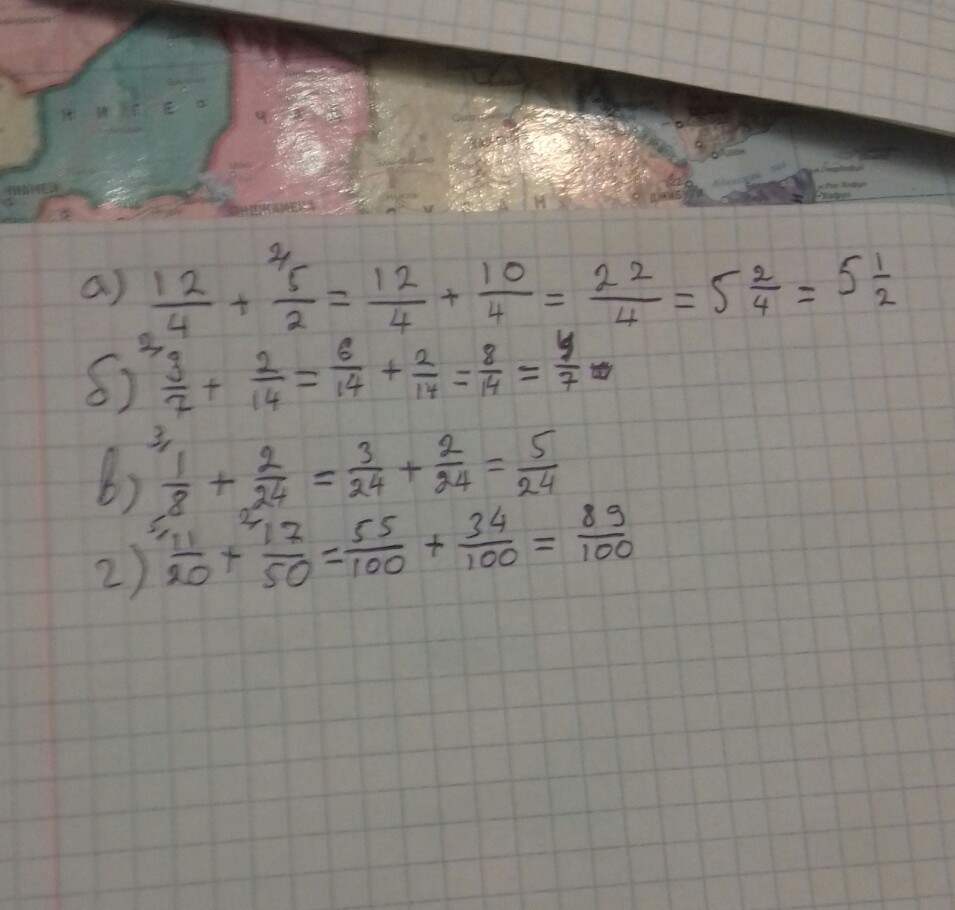 НИГЕ
ЧАД
НДЖАМЕНА
ДЖИБ
а) 12/4 + 2/5/2 = 12/4 + 10/4 = 22/4 = 5 2/4 = 5 1/2
б) 2/3/7 + 2/14 = 6/14 + 2/14 = 8/14 = 4/7
в) 3/1/8 + 2/24 = 3/24 + 2/24 = 5/24
г) 5/11/20 + 2/17/50 = 55/100 + 34/100 = 89/100